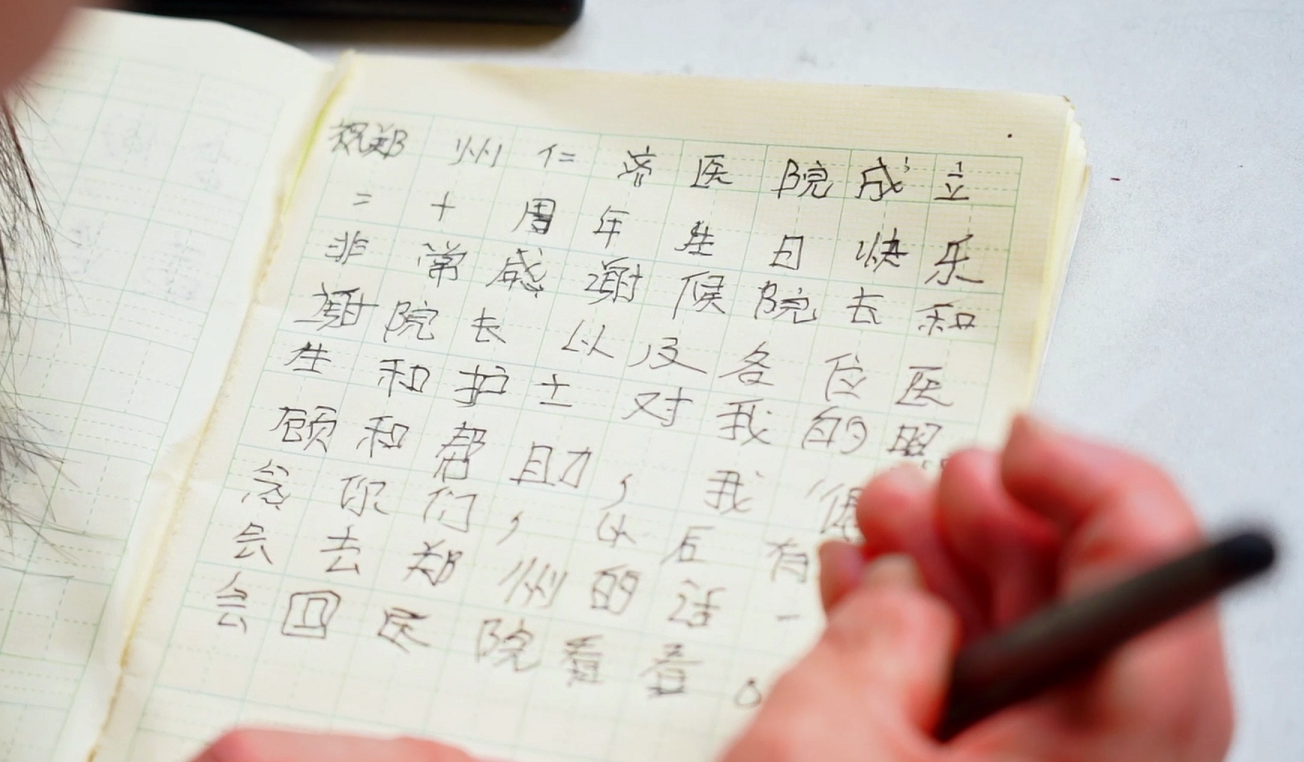 祝郑州仁济医院成立
二十周年生日快乐
非常感谢候院长和
谢院长以及各位医
生和护士对我的照
顾和帮助，我很
念你们，以后有
会去郑州的话一
会回医院看看。